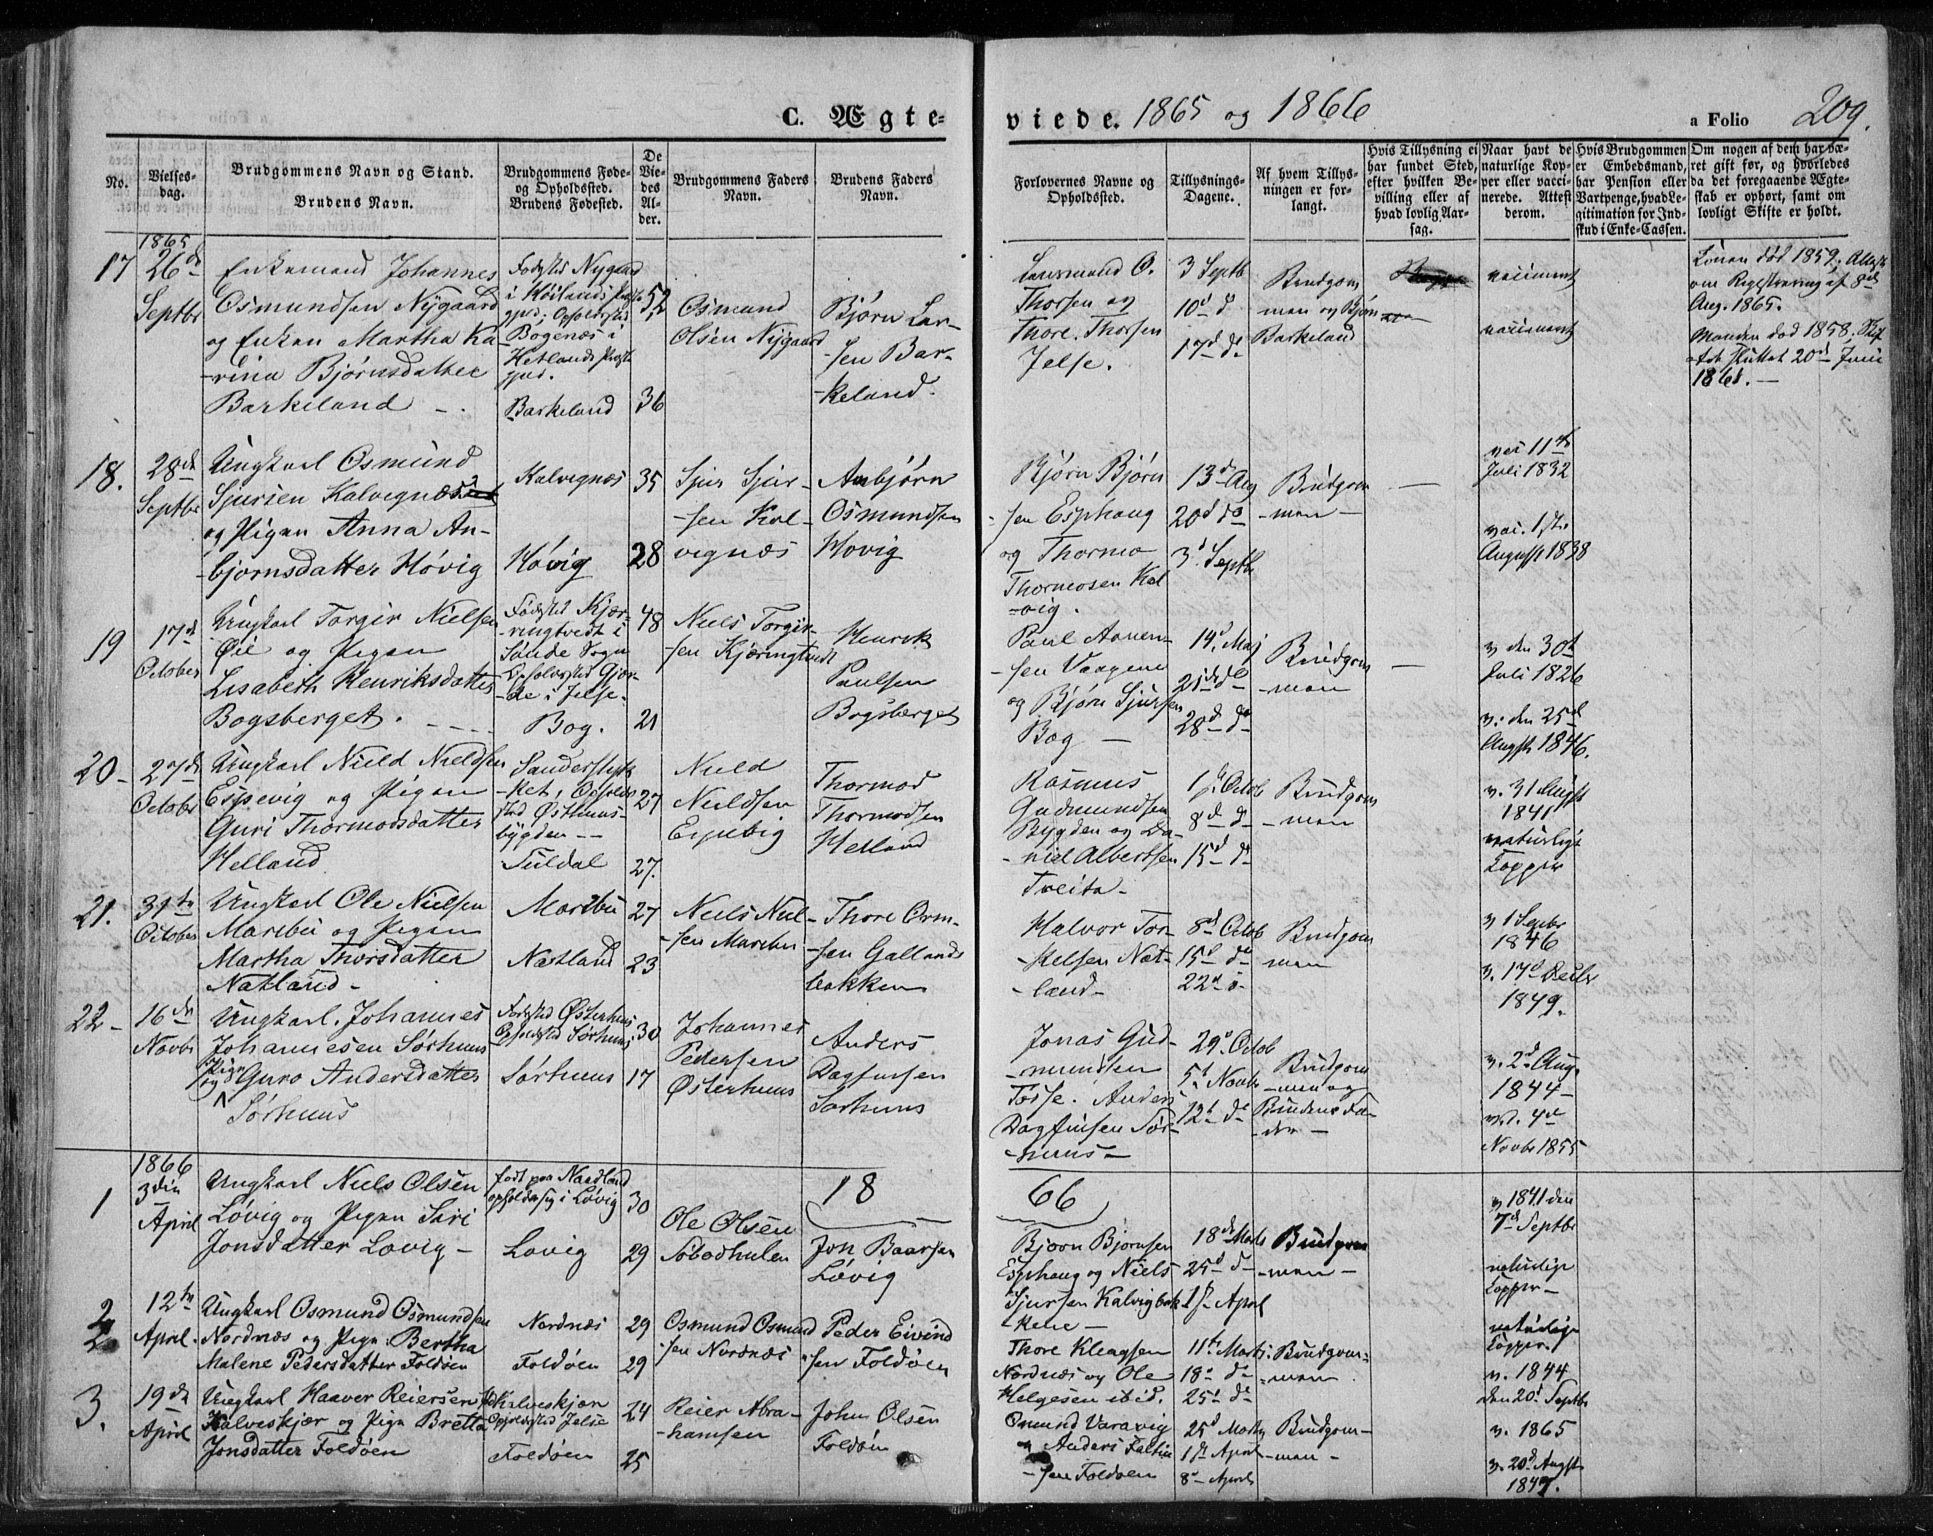 C. Ægte-
viede. 1865 og 1866
a Folio 209.
No.
Vielses-
dag.
Brudgommens Navn og Stand.
Brudens Navn.
Brudgommens Føde-
og Opholdssted.
Brudens Fødested.
De
Vie-
des
Al-
der.
Brudgommens Faders
Navn.
Brudens Faders
Navn.
Forlovernes Navne og
Opholdssted.
Tillysnings-
Dagene.
Af hvem Tillys-
ningen er for-
langt.
Hvis Tillysning ei
har fundet Sted,
efter hvilken Be-
villing eller af
hvad lovlig Aar-
sag.
Naar havt de
naturlige Kop-
per eller vacci-
nerede. Attest
derom.
Hvis Brudgommen
er Embedsmand,
har Pension eller
Vartpenge, hvad Le-
gitimation for Ind-
skud i Enke-Cassen.
Om nogen af dem har væ-
ret gift før, og hvorledes
da det foregaaende Ægte-
skab er ophørt, samt om
lovligt Skifte er holdt.
1865
17
26de
Septbr
Enkemand Johannes
Osmundsen Nygaard
og Enken Martha Ka-
-rina Bjørnsdatter
Barkeland -
Fodested Nygaard
Bogenæs i
Hetlands
Barkeland
52
36
Osmund
Olsen Nygaard
Bjørn Lar-
-sen Bar-
-keland.
Lensmand O.
Thorsen og
Thore Thorsen
Jelse.
3 Septb
10d do
17d do
Brudgom
man og Bjørn
Barkeland
vaccineret
vaccineret
Konen død 1859, Attest
om Registrering af 8de
Aug. 1865.
Manden død 1858, Skif-
sluttet 20de Juni
1861. -
18.
28de
Septbr
Ungkarl Osmund
Sjursen Kalvignæs
og Pigen Anna An-
-bjørnsdatter Høvig
Kalvignæs
Høvig
35
28
Sjur Sjur-
-sen Kal-
vignæs
Anbjørn
Osmundsen
Hovig
Bjørn Bjørn
-sen Esphaug
og Thormo
Thormosen Kal
-vig.
13d Aug
20d do
3d Septb
Brudgom
-man -
-
vac 11te
Juli 1832
vac. 1ste
August 1838
19
17de
October
Ungkarl Torgir Nielsen
Øie og Pigen
Lisabeth Henriksdatter
Bogsberget. -
Fødested Kjær-
-ringtvedt i
Sande Sogn
-ke i Jelse.
Bog.
48
21
Niels Torgir-
-sen Kjæringtvedt
Henrik
Paulsen
Bogsberget
Paul Aanen-
-sen Vaagene
og Bjørn Sjursen
Bog -
14d Maj
21de do
28d do
Brudgom
-man
-
v den 30te
Juli 1826
v. den 25d
Augst 1846.
20-
27de
October
Ungkarl Nield Nieldsen
Espevig og Pigen
Guri Thormodsdatter
Helland
-ket, Ophold-
sted Østhuus-
bygden --
Suldal
27
27.
Nield
Nieldsen
Espevig
Thormod
Thormodsen
Helland
Rasmus
Gudmundsen
Bygden og Da-
-niel Albertsen
Tveita-
1ste Octob
8de do
15d do
Brudgom
-man
v. 31 Augst
1841
naturlige
Kopper
21.
31te
October
Ungkarl Ole Nielsen
Marsbu og Pigen
Martha Thorsdatter
Natland-
Marsbu
Natland
27
23
Niels Niel-
-sen Marsbu
Thore Orm-
-sen Gallands
bakken
Halvor Tor-
-kelsen Nat-
-land-
8de Octob
15d do
22d do
Brudgom
man
v 1 Septbr
1846
v. 17d Decbr
1849.
22-
16de
Novbr
Ungkarl. Johannes
Johannesen Sørhuus
og Pigen Guro Andersdatter
Sørhuus
Fodested Østerhuus
Opholdsted Sørhuus
Sørhuus
30
17
Johannes
Pedersen
Østerhuus
Anders
Dagfinsen
Sørhuus
Jonas Gud-
-mundsen
Fosse. Anders
Dagfinsen Sør-
-huus-
29d Octob
5d Novbr
12d do
Brudgom
-men og
Brudens Fa-
-der -
v. 2d Aug.
1844-
v. 4de
Novbr 1855
1866
18
66
1
3die
April
Ungkarl Niels Olsen
Løvig og Pigen Siri
Jonsdatter Løvig-
født paa Nordland
opholder sig i Løvig
Lovig
30
29
Ole Olsen
Jon Baarsen
Løvig
Bjørn Bjørnsen
Esphaug og Niels
Sjursen Kalvigbak
kene -
18de Marts
25d do
1ste April
Brudgom
-man -
v 1841 den
7de Septbr
naturlige
Kopper-
2
12te
April.
Ungkarl Osmund Osmundsen
Nordnæs og Pigen Bertha
Malene Pedersdatter Foldøen
Nordnæs
Foldøen
29
29
Osmund Osmund
-sen Nordnæs
Peder Eivind
-sen Foldøen
Thore Kleagsen
Nordnæs og Ole
Helgesen ibid.
11te Marts
18- do
25d do
Brudgom-
-man
naturlige
Kopper.
v. 1844
den 20d Septbr
3.
19de
April
Ungkarl Haaver Reiersen
Kalveskjær og Pigen Bretta
Jonsdatter Foldøen
Kalveskjær
Opholdsted Jelse
Foldøen
24
25
Reier Abra-
hamsen
John Olsen
Foldøn
Osmund Varavig
og Anders
-sen Foldøen
25d Marts
1ste April
8- April
Brudgom-
-man -
v. 1865
v. 20d Augst
1847.